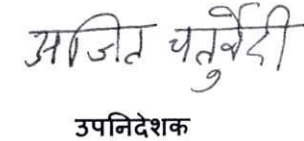 अजित चतुर्वेदी
उपनिदेशक